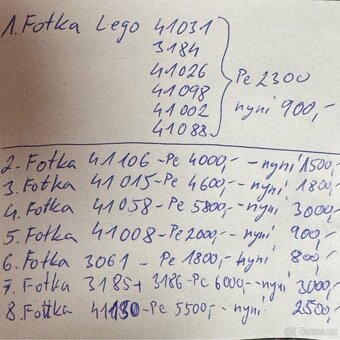 1. Fotka Lego 41031
3184
41026
41098
41002
41088
Pe 2300
nyní 900,-
2. Fotka 41106 - Pe 4000,- - nyní 1500,-
3. Fotka 41015 - Pe 4600,- - nyní 1800,-
4. Fotka 41058 - Pe 5800,- - nyní 3000,-
5. Fotka 41008 - Pe 2000,- - nyní 900,-
6. Fotka 3061 - Pe 1800,- nyní 800,-
7. Fotka 3185 + 3186 - Pc 6000,- - nyní 3000,-
8. Fotka 41130 - Pe 5500,- - nyní 2500,-
Bazos.cz